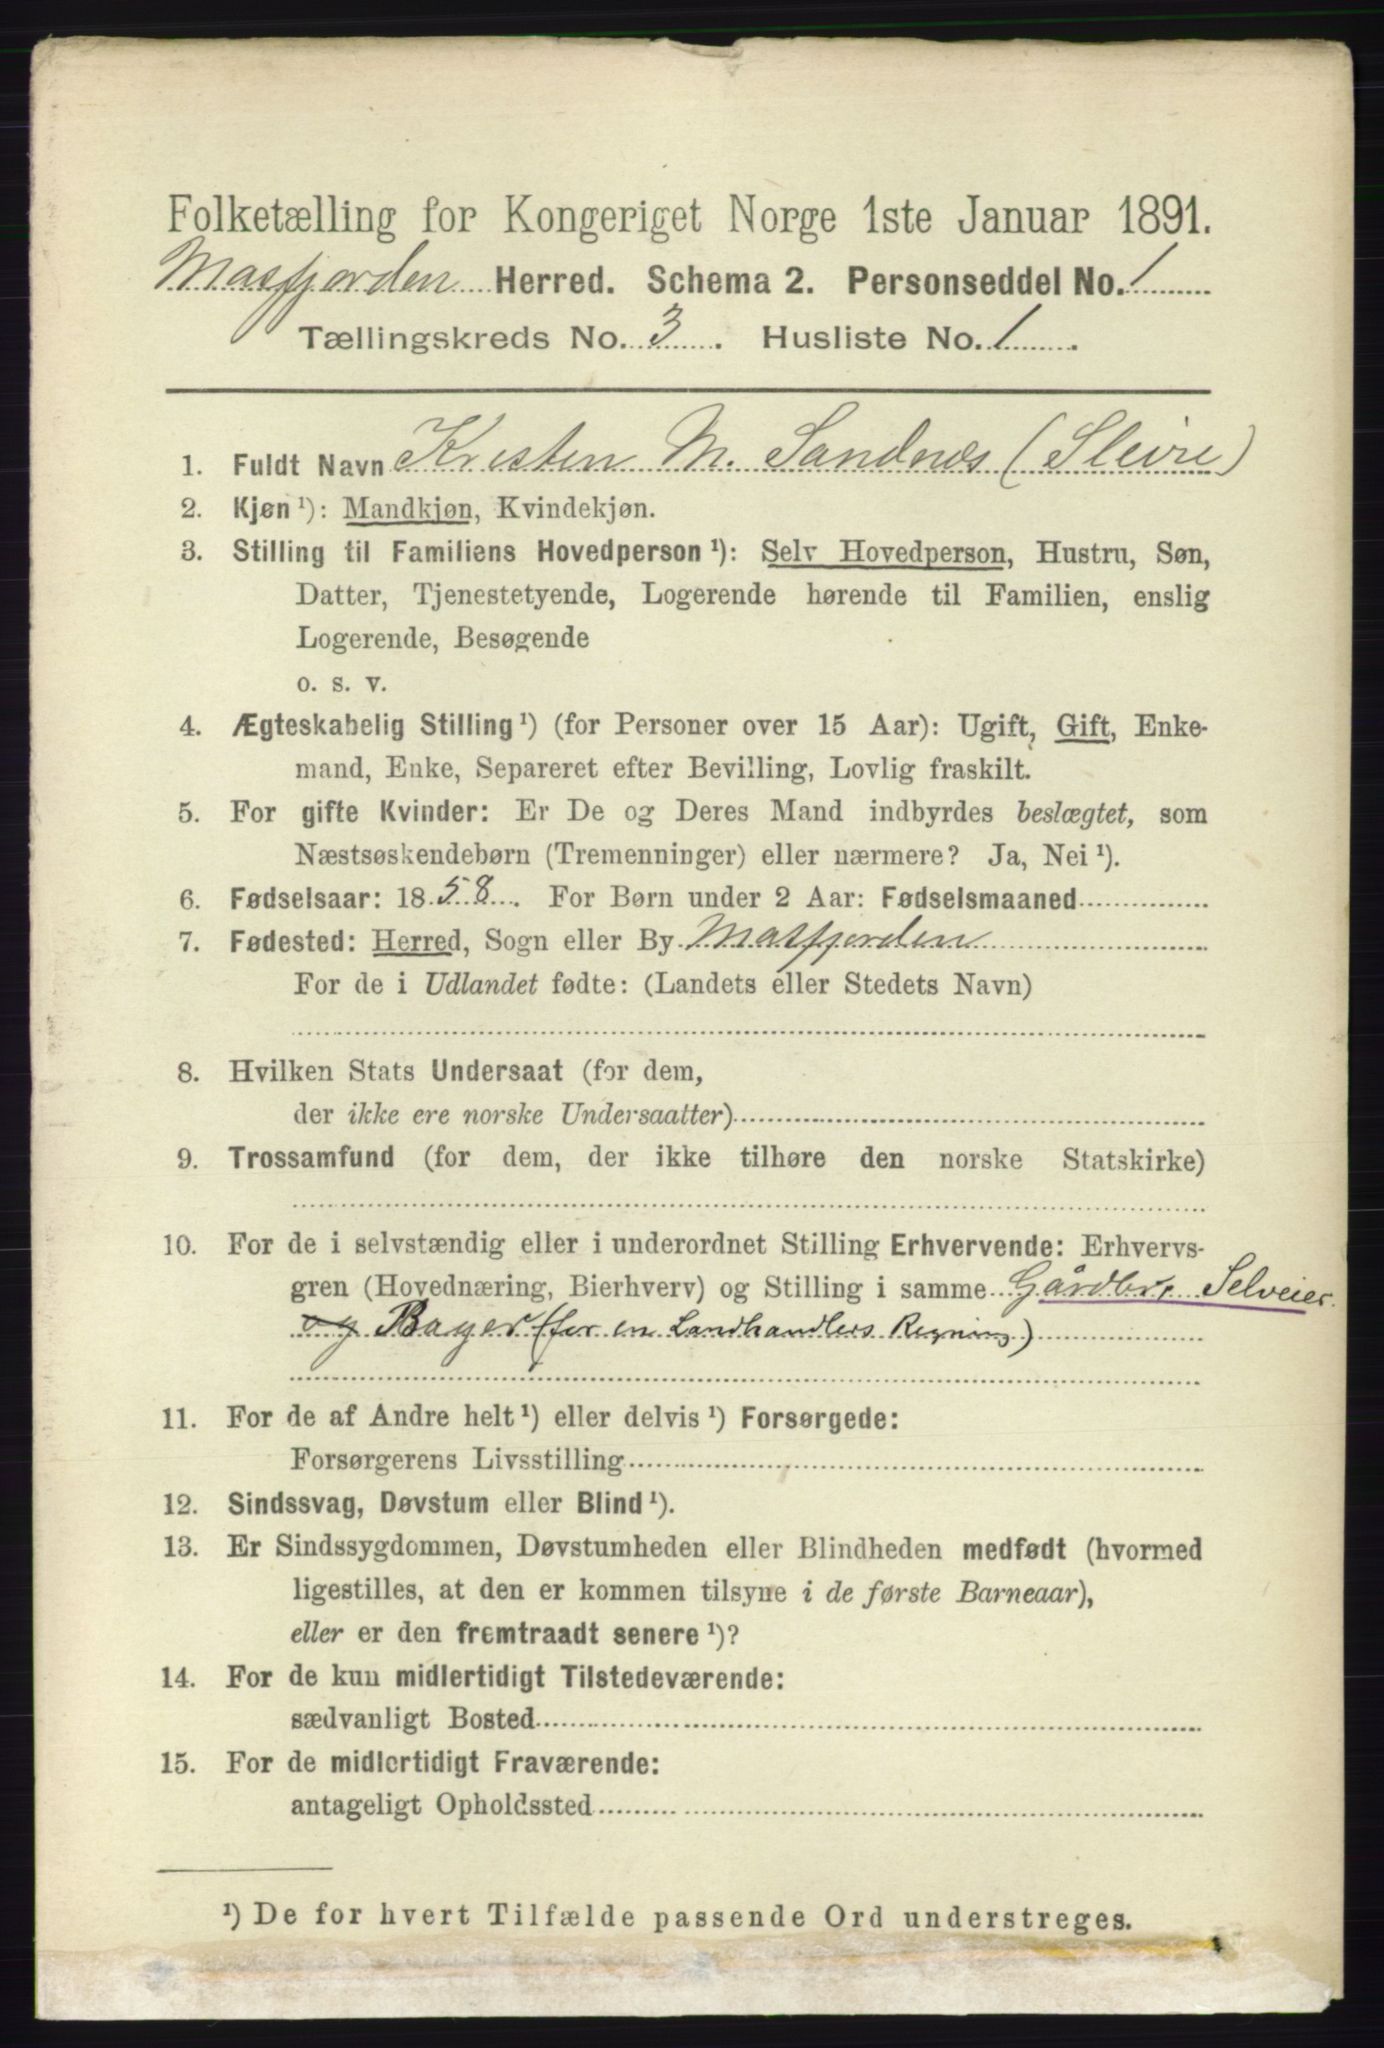 Folketælling for Kongeriget Norge 1ste Januar 1891.
Masfjorden Herred. Schema 2. Personseddel No. 1
Tællingskreds No. 3. Husliste No. 1.
1. Fuldt Navn Kristen M. Sandnæs (Sleire)
2. Kjøn ¹): Mandkjøn, Kvindekjøn.
3. Stilling til Familiens Hovedperson ¹): Selv Hovedperson, Hustru, Søn,
Datter, Tjenestetyende, Logerende hørende til Familien, enslig
Logerende, Besøgende
o. s. v.
4. Ægteskabelig Stilling ¹) (for Personer over 15 Aar): Ugift, Gift, Enke-
mand, Enke, Separeret efter Bevilling, Lovlig fraskilt.
5. For gifte Kvinder: Er De og Deres Mand indbyrdes beslægtet, som
Næstsøskendebørn (Tremenninger) eller nærmere? Ja, Nei ¹).
6. Fødselsaar: 1858. For Børn under 2 Aar: Fødselsmaaned
7. Fødested: Herred, Sogn eller By Masfjorden
For de i Udlandet fødte: (Landets eller Stedets Navn)
8. Hvilken Stats Undersaat (for dem,
der ikke ere norske Undersaatter)
9. Trossamfund (for dem, der ikke tilhøre den norske Statskirke)
10. For de i selvstændig eller i underordnet Stilling Erhvervende: Erhvervs-
gren (Hovednæring, Bierhverv) og Stilling i samme Gårdbr. Selveier
og Bager (for en Landhandlers Regning)
11. For de af Andre helt ¹) eller delvis ¹) Forsørgede:
Forsørgerens Livsstilling
12. Sindssvag, Døvstum eller Blind ¹).
13. Er Sindssygdommen, Døvstumheden eller Blindheden medfødt (hvormed
ligestilles, at den er kommen tilsyne i de første Barneaar),
eller er den fremtraadt senere ¹)?
14. For de kun midlertidigt Tilstedeværende:
sædvanligt Bosted
15. For de midlertidigt Fraværende:
antageligt Opholdssted
¹) De for hvert Tilfælde passende Ord understreges.